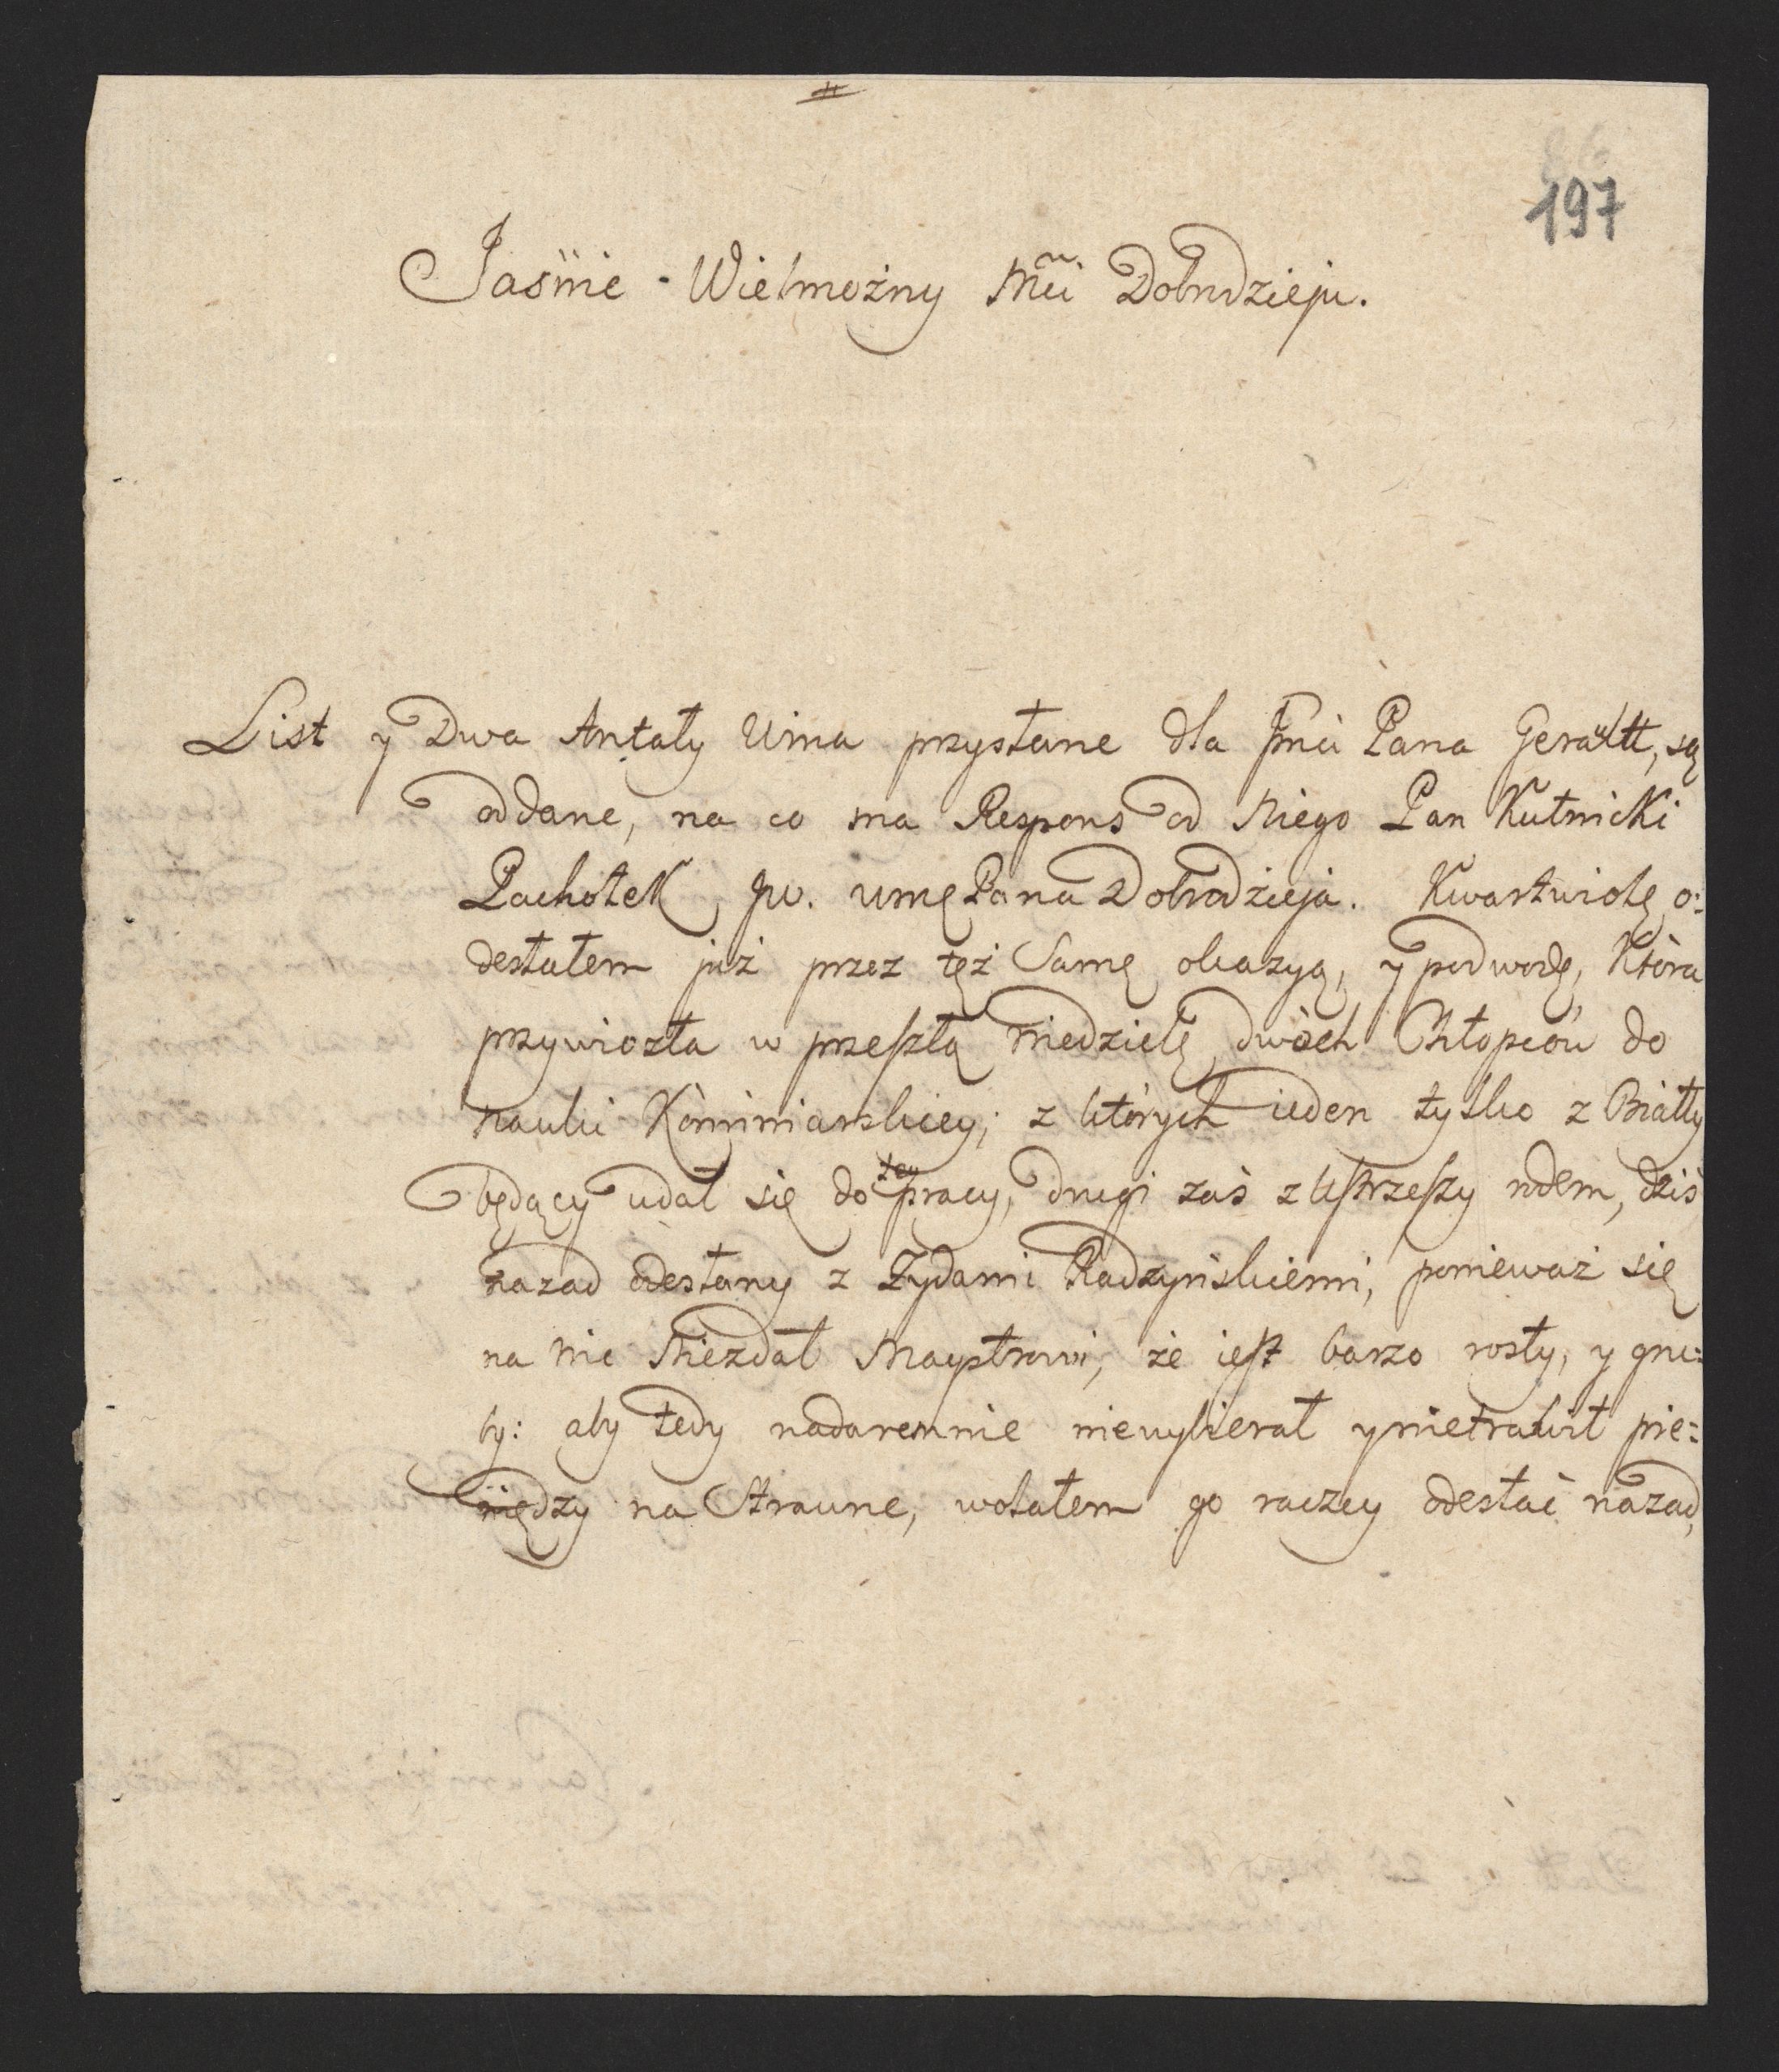 197
Jaśnie Wielmożny Mci Dobrodzieju.
List y Dwa Antały Wina przysłane dla Jmci Pana Geraltt, są
oddane, na co ma Respons od Niego Pan Kutnicki
Pachołek JW. Wmę Pana Dobrodzieja. Kwartwiolę o:
desłałem już przez tęż Samę okazyą, y podwodę, Która
przywiozła w przeszłą Niedzielę dwòch Chłopców do
Nauki Kòminiarskiey; z których ieden tylko z Białły
będący udał się do tey pracy, drugi zaś z Ustrzeszy rodem, dziś
nazad odesłany z Żydami Radzyńskiemi, ponieważ się
na nic Niezdał Maystrowi, że iest barzo rosły, y gru:
by: aby tedy nadaremnie niewybierał y nietrawił pie:
niędzy na Strawne, wolałem go raczey odesłać nazad,